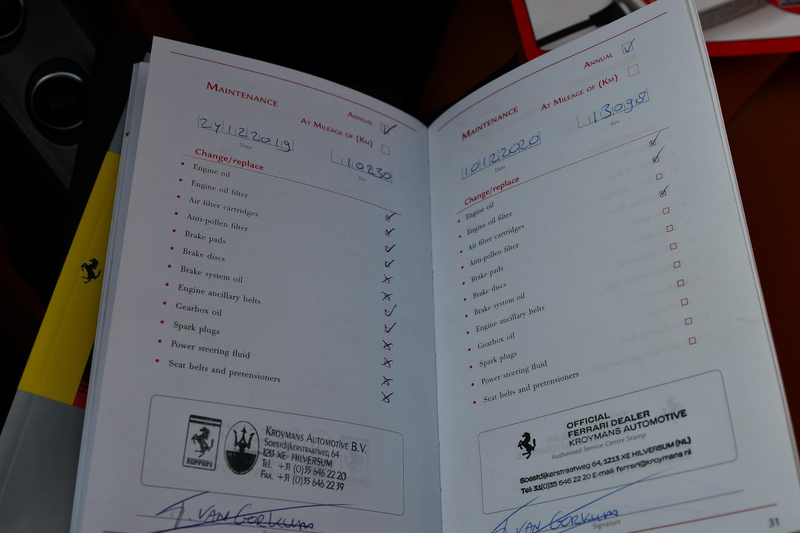 MAINTENANCE
ANNUAL
AT MILEAGE OF (KM)
24122019
10230
Date
Km
Change/replace
Engine oil
Engine oil filter
Air filter cartridges
Anti-pollen filter
Brake pads
Brake discs
Brake system oil
Engine ancillary belts
Gearbox oil
Spark plugs
Power steering fluid
Seat belts and pretensioners
Ferrari
KROYMANS AUTOMOTIVE B.V.
Soestdijkerstraatweg 64
1213 XE HILVERSUM
Tel. +31 (0)35 646 22 20
Fax. +31 (0)35 646 22 39
T. VAN GORKUM
MAINTENANCE
ANNUAL
AT MILEAGE OF (KM)
10122020
13098
Date
Km
Change/replace
Engine oil
Engine oil filter
Air filter cartridges
Anti-pollen filter
Brake pads
Brake discs
Brake system oil
Engine ancillary belts
Gearbox oil
Spark plugs
Power steering fluid
Seat belts and pretensioners
OFFICIAL
FERRARI DEALER
KROYMANS AUTOMOTIVE
Authorised Service Centre Stamp
Soestdijkerstraatweg 64, 1213 XE HILVERSUM (NL)
Tel: 31(0)35 646 22 20 E-mail: ferrari@kroymans.nl
T. VAN GORKUM
Signature
31